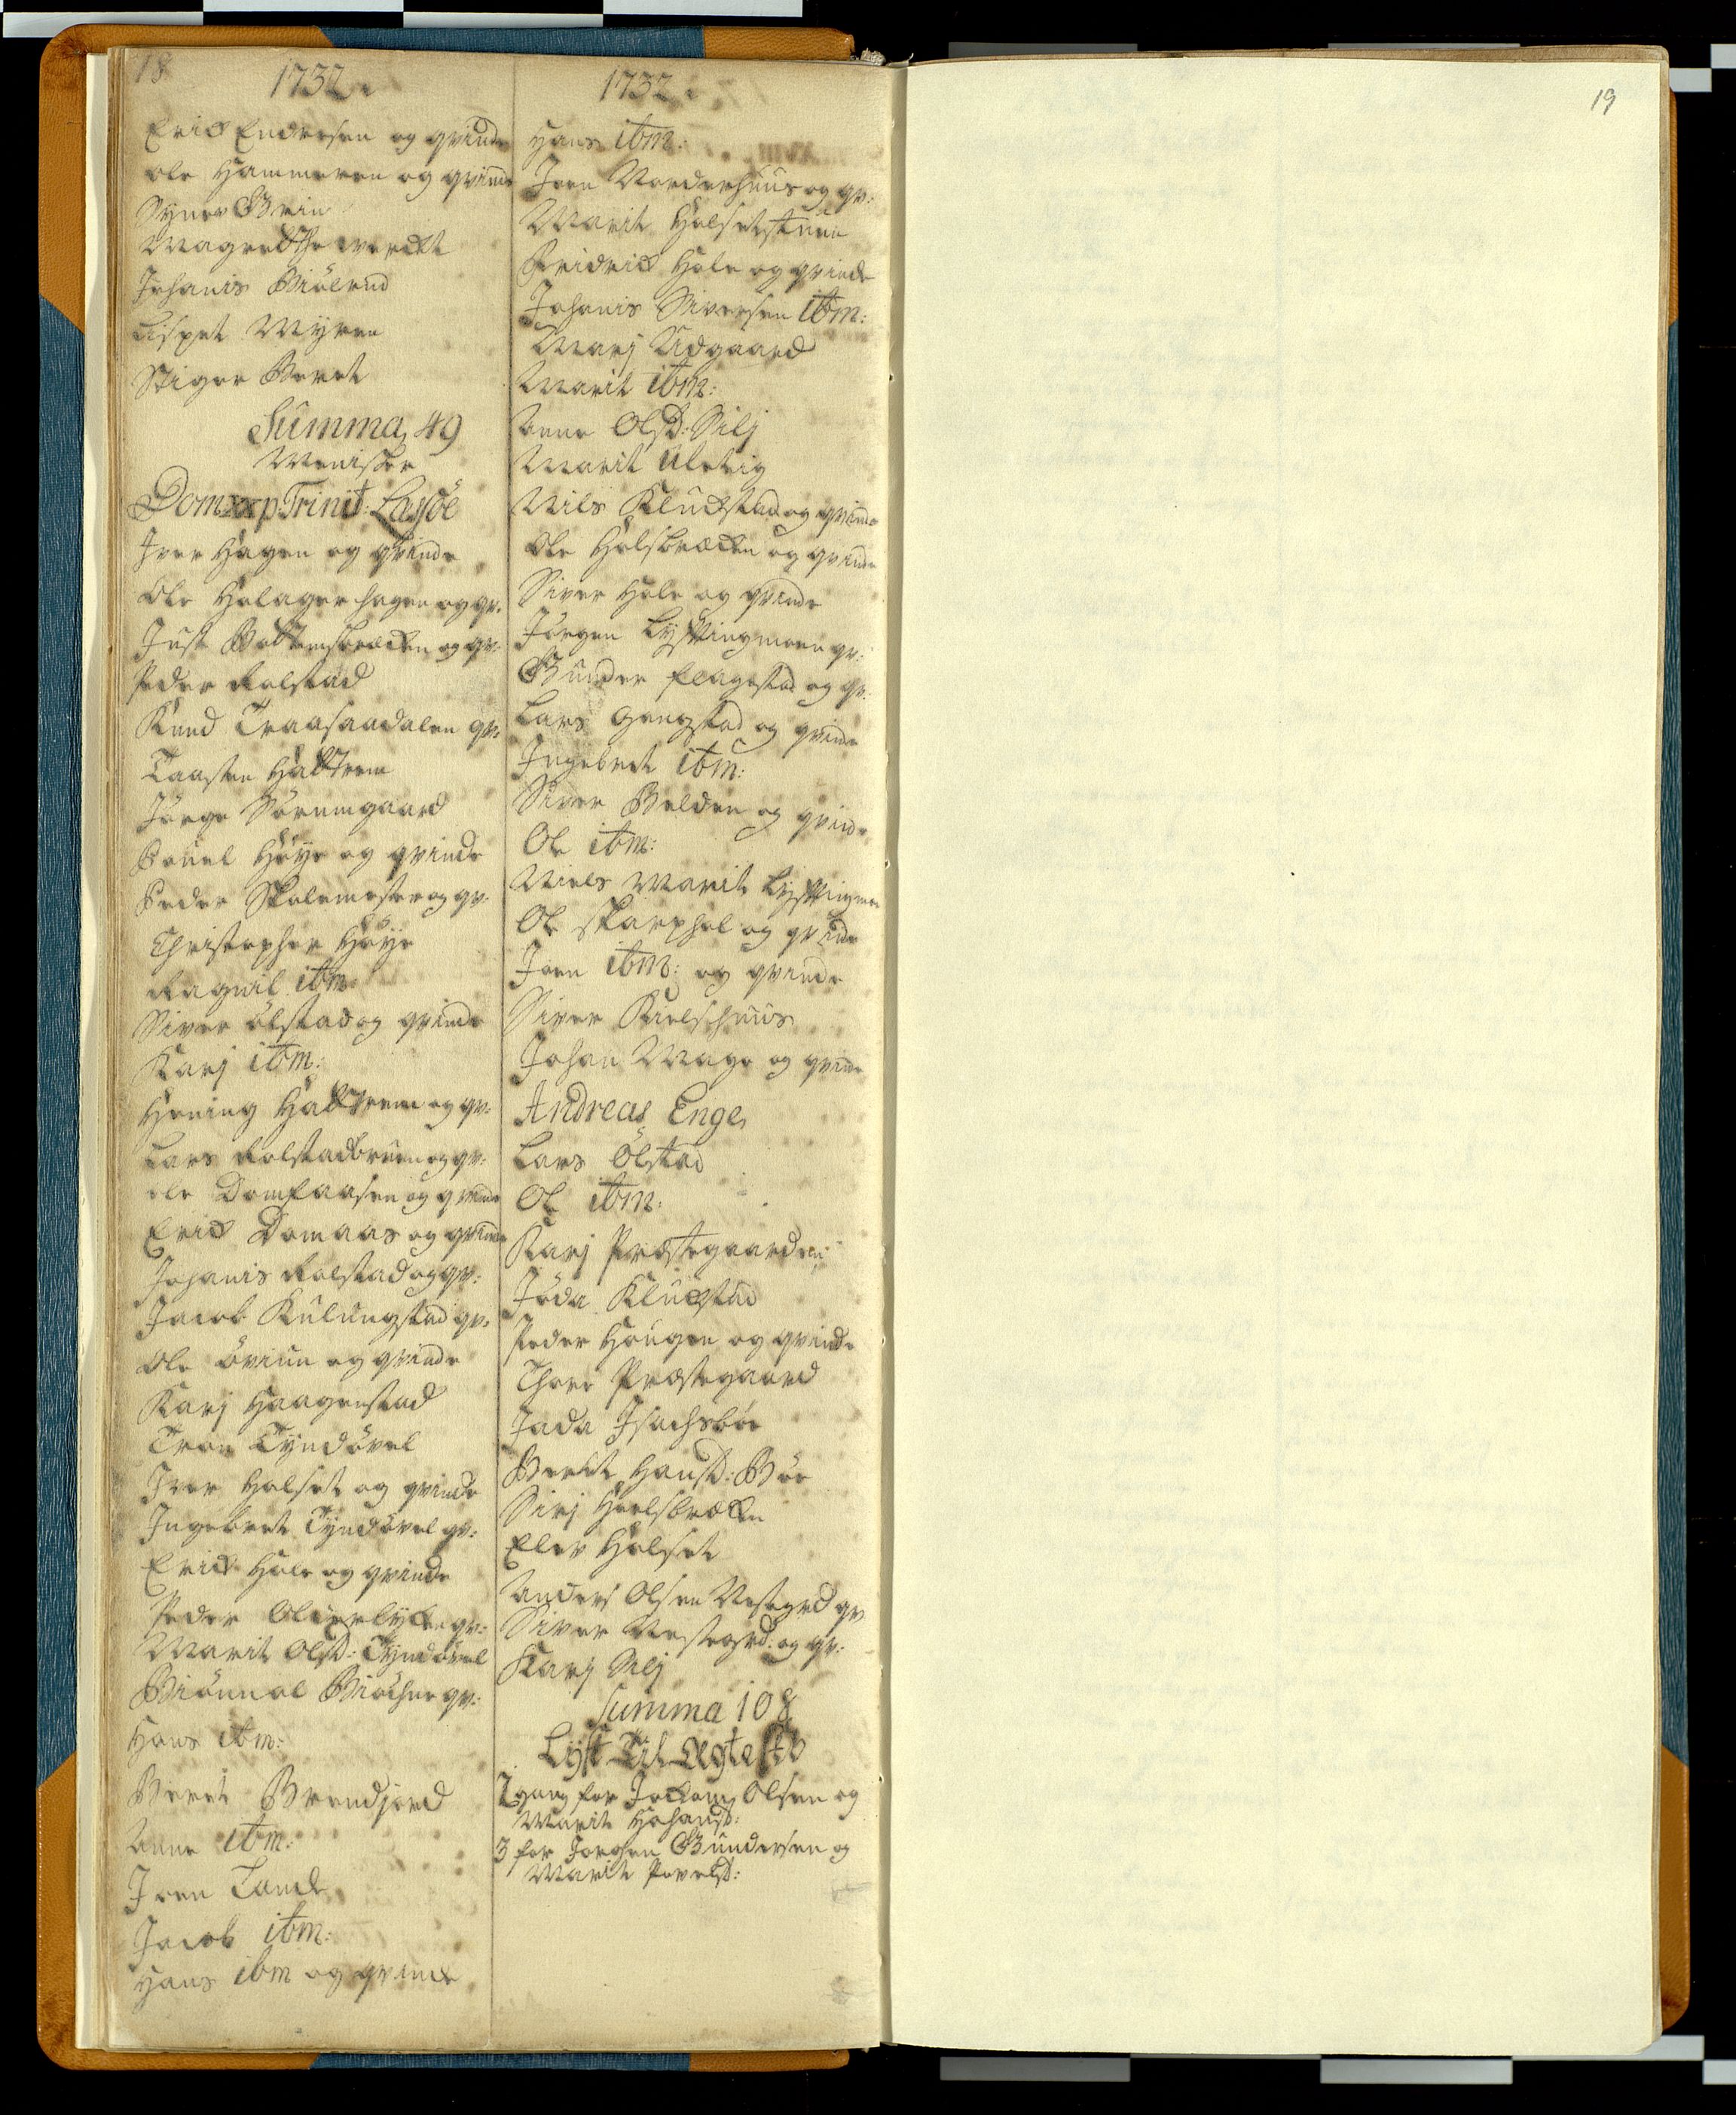 18
1732.
Erick Endersen og qvinde
ole Hammeren og qvinde
Synov Brin
Magrethe
Johanis Biölund
Lispet Myren
Stiger Beret
Summa 49
Menisker
Dom xx p Trinit: Layöe
Iver Hagen og qvinde
Ole Holager hagen og qv:
Just bræcken og qv:
Peder Rolstad
Knud Traasaadalen qv:
Taasten Hattrem
Jörge Sörumgaard
Povel Höye og qvinde
Peder Skolemester og qv:
Christopher Höye
Ragnil itm
Siver ölstad og qvinde
Karj itm:
Hening Hattrem og qv:
Lars Rolstadbruen og qv:
ole Domfaasen og qvinde
Erick Domaas og qvinde
Johanis Rolstad og qv:
Jacob Kulungstad qv:
Ole öviun og qvinde
Karj Haagenstad
Tron Tyndövel
Iver Holset og qvinde
Ingebret Tyndövel qv:
Erick Hole og qvinde
Peder qv:
Marit Olsd: Tyndövel
Biönnol Biöthne qv:
Hans itm:
Berit Brendjord
Anne itm:
Joen Lande
Jacob itm:
Hans itm og qvinde
1732.
Hans itm:
Joen Norderhuus og qv:
Marit Holsetstuen
Fridrick Hole og qvinde
Johanis Siversen itm:
Marj Udgaard
Marit itm:
Anne Olsd: Silj
Marit Ulvig
Nils Kluckstad og qvinde
Ole Holsbræcken og qvinde
Siver Hole og qvinde
Jörgen Lystingmoen qv:
Gunder flagstad og qv:
Lars Gangstad og qvinde
Ingebret itm:
Siver Belden og qvinde
Ole itm:
Niels Marit Lystingmoen
Ole Skarphol og qvinde
Joen itm: og qvinde
Siver
Johan Mage og qvinde
Andreas Enge
Lars ölstad
Ole itm:
Karj Præstegaarden:
Jöda Kluckstad
Peder Haugen og qvinde
Thore Præstegaard
Jada Isachsböe
Berit Hansd: Böe
Sirj Holsbræcken
Elev Holset
Anders Olsen Nestegrd qv
Siver Nestegrd: og qv:
Karj Silj
Summa 108
Lyst Til Ægteskb
2 gang for Jockom Olsen og
Marit Johansd:
3 for Jörgen Gundersen og
Marit Povelsd:
19